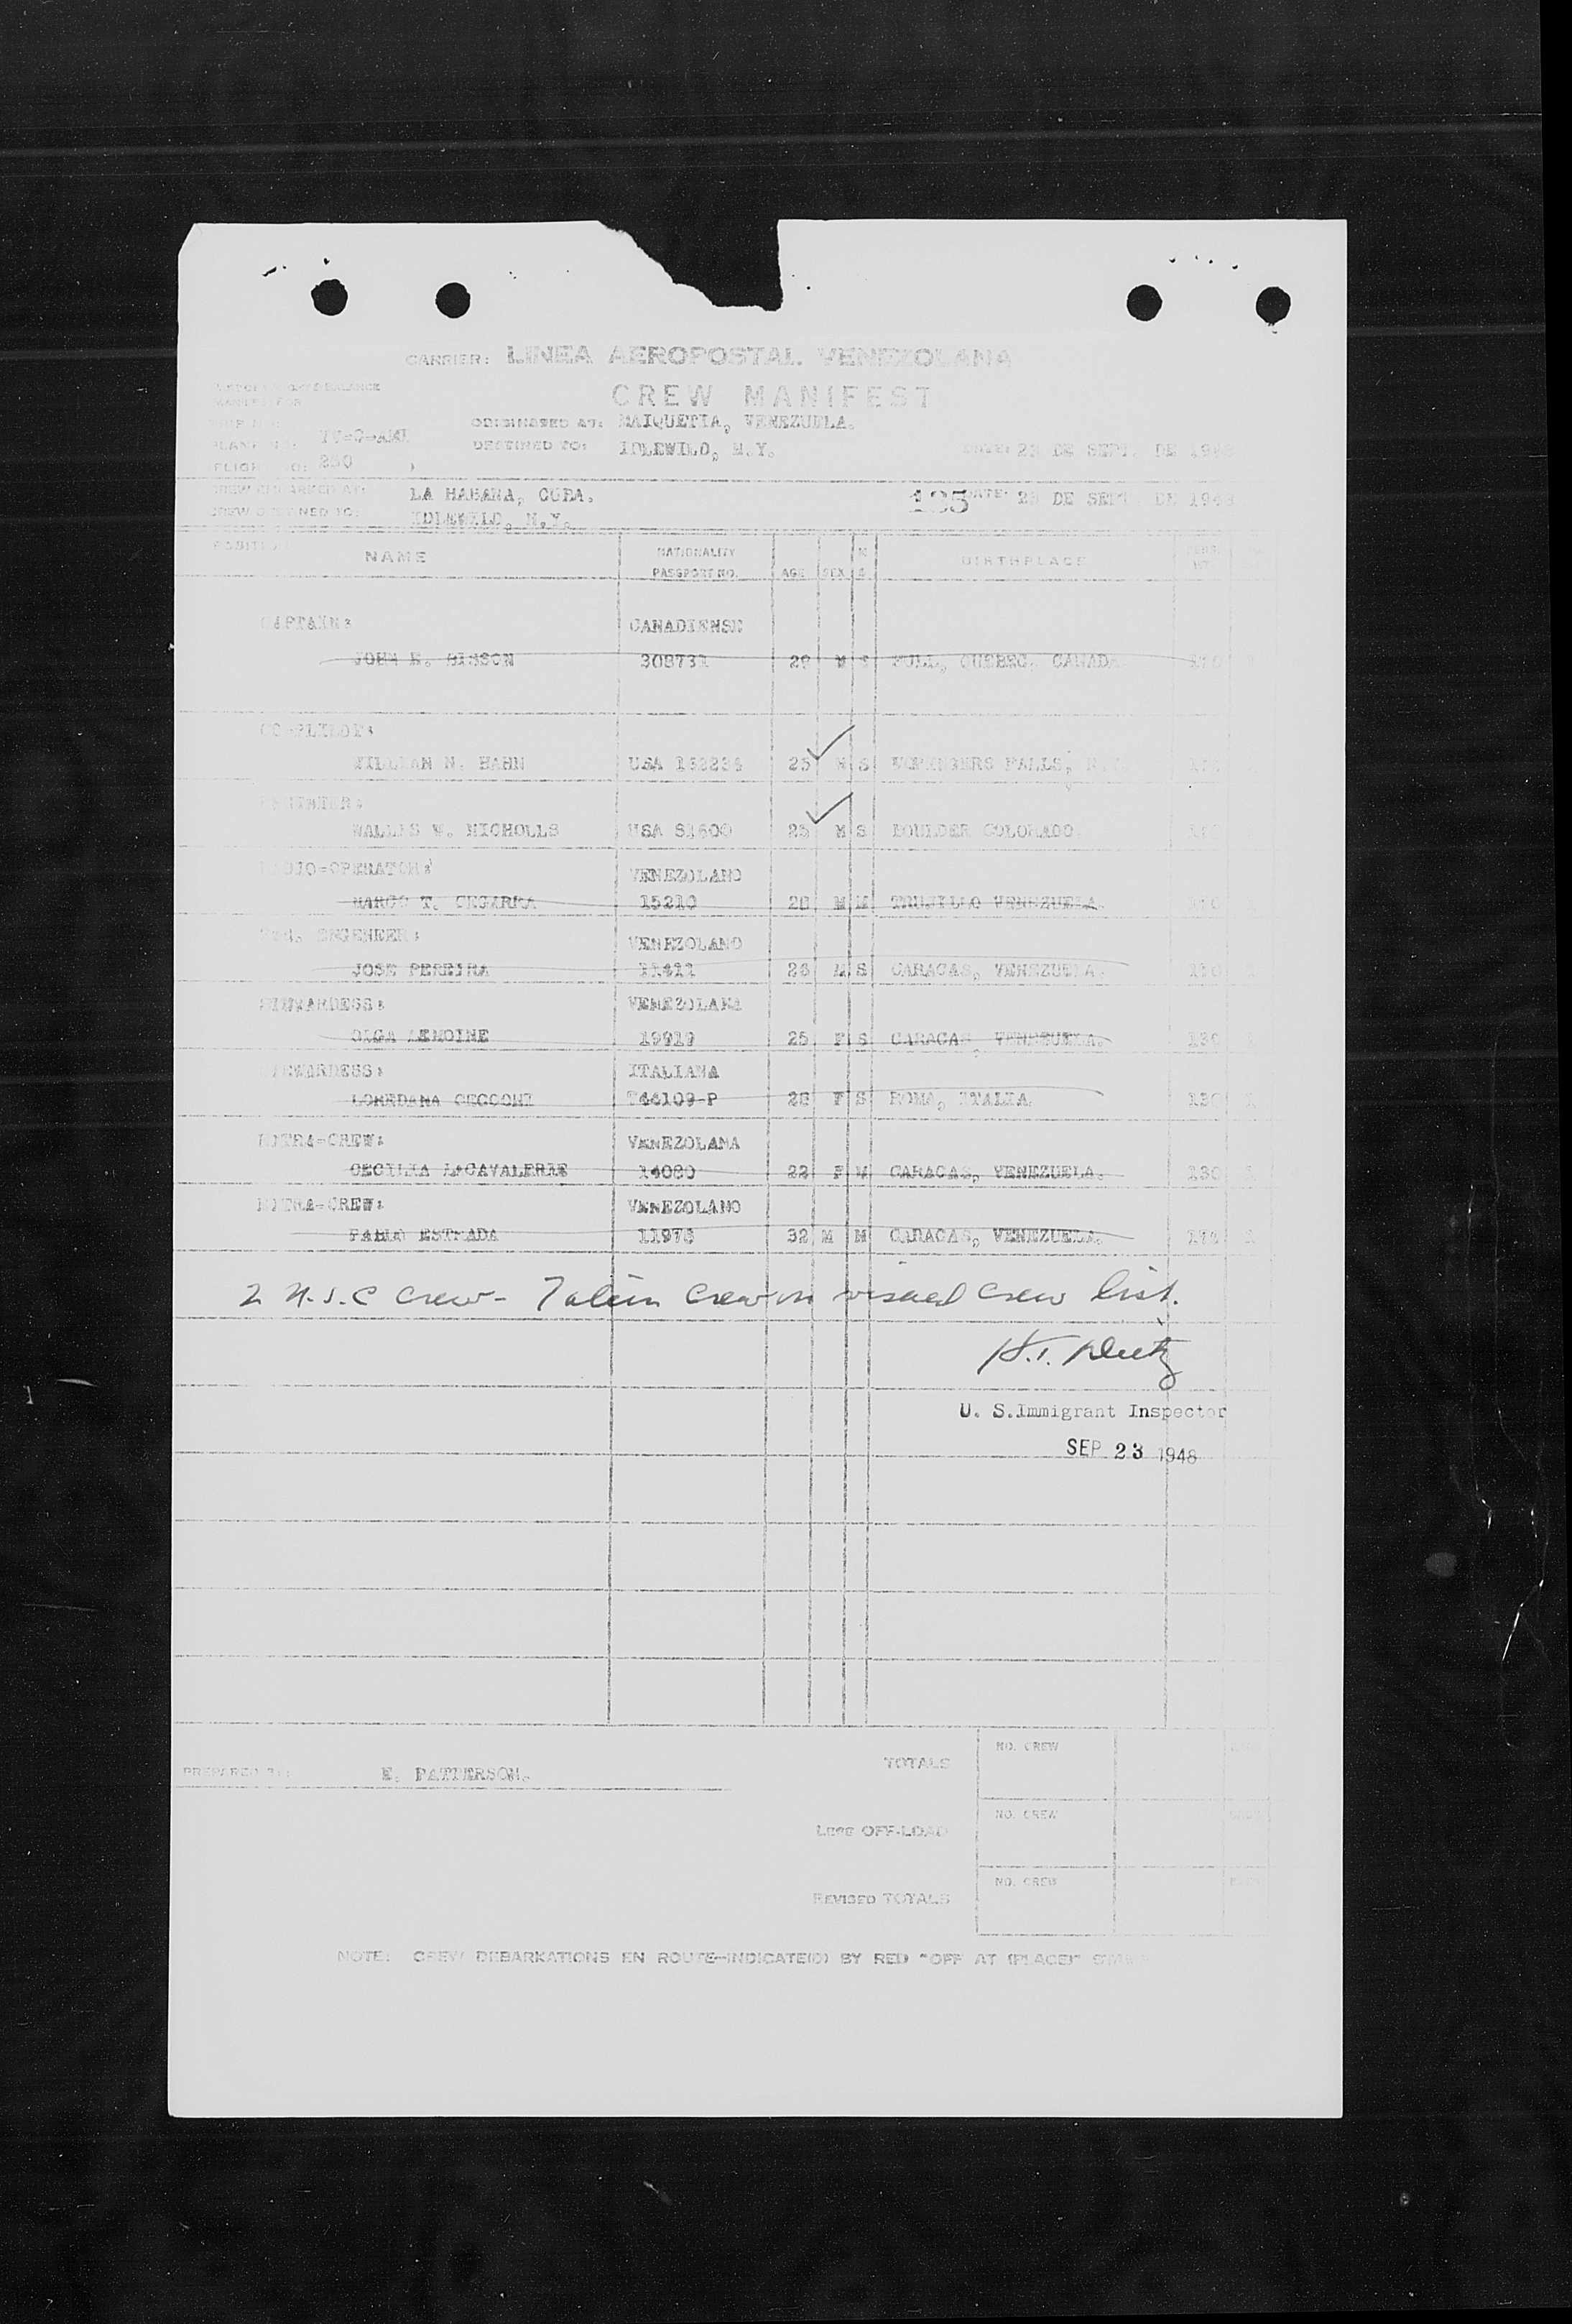 CARRIER: LINEA AEROPOSTAL VENEZOLANA
CREW MANIFEST
ORIGINATED AT: MAIQUETIA, VENEZUELA.
DESTINED TO: IDLEWILD, N.Y.
DATE: 23 DE SEPT. DE 1948
FLIGHT NO: 250
CREW EMBARKED AT: LA HABANA, CUBA.
125 DATE: 23 DE SEPT. DE 1948
CREW DESTINED TO: IDLEWILD, N.Y.
POSITION NAME NATIONALITY PASSPORT NO. AGE SEX M S BIRTHPLACE
CAPTAIN: CANADIENSE
JOHN E. BISSON 308731 29 M S HULL, QUEBEC, CANADA
CO-PILOT:
WILLIAN N. HAHN USA 25 M S WAPINGERS FALLS, N.Y.
WALLIS W. NICHOLLS USA 25 M S BOULDER COLORADO
RADIO-OPERATOR: VENEZOLANO
MARCO T. CEGARRA 15210 28 M M TRUJILLO VENEZUELA.
ENGENEER: VENEZOLANO
JOSE PEREIRA 11411 26 M S CARACAS, VENEZUELA.
STEWARDESS: VENEZOLANA
OLGA LEMOINE 19919 25 F S CARACAS, VENEZUELA.
STEWARDESS: ITALIANA
LOREDANA CECCONI 44109-P 28 F S ROMA, ITALIA.
EXTRA-CREW: VENEZOLANA
CECILIA LACAVALERIE 14080 22 F M CARACAS, VENEZUELA.
EXTRA-CREW: VENEZOLANO
PABLO ESTRADA 11978 32 M M CARACAS, VENEZUELA.
2 U.S.C crew - 7 alien crew on visaed crew list.
U. S.Immigrant Inspector
SEP 23 1948
TOTALS NO. CREW
PREPARED BY: E. PATTERSON.
LESS OFF-LOAD NO. CREW
REVISED TOTALS NO. CREW
NOTE: CREW DEBARKATIONS EN ROUTE-INDICATE(D) BY RED "OFF AT (PLACE)" STAMP